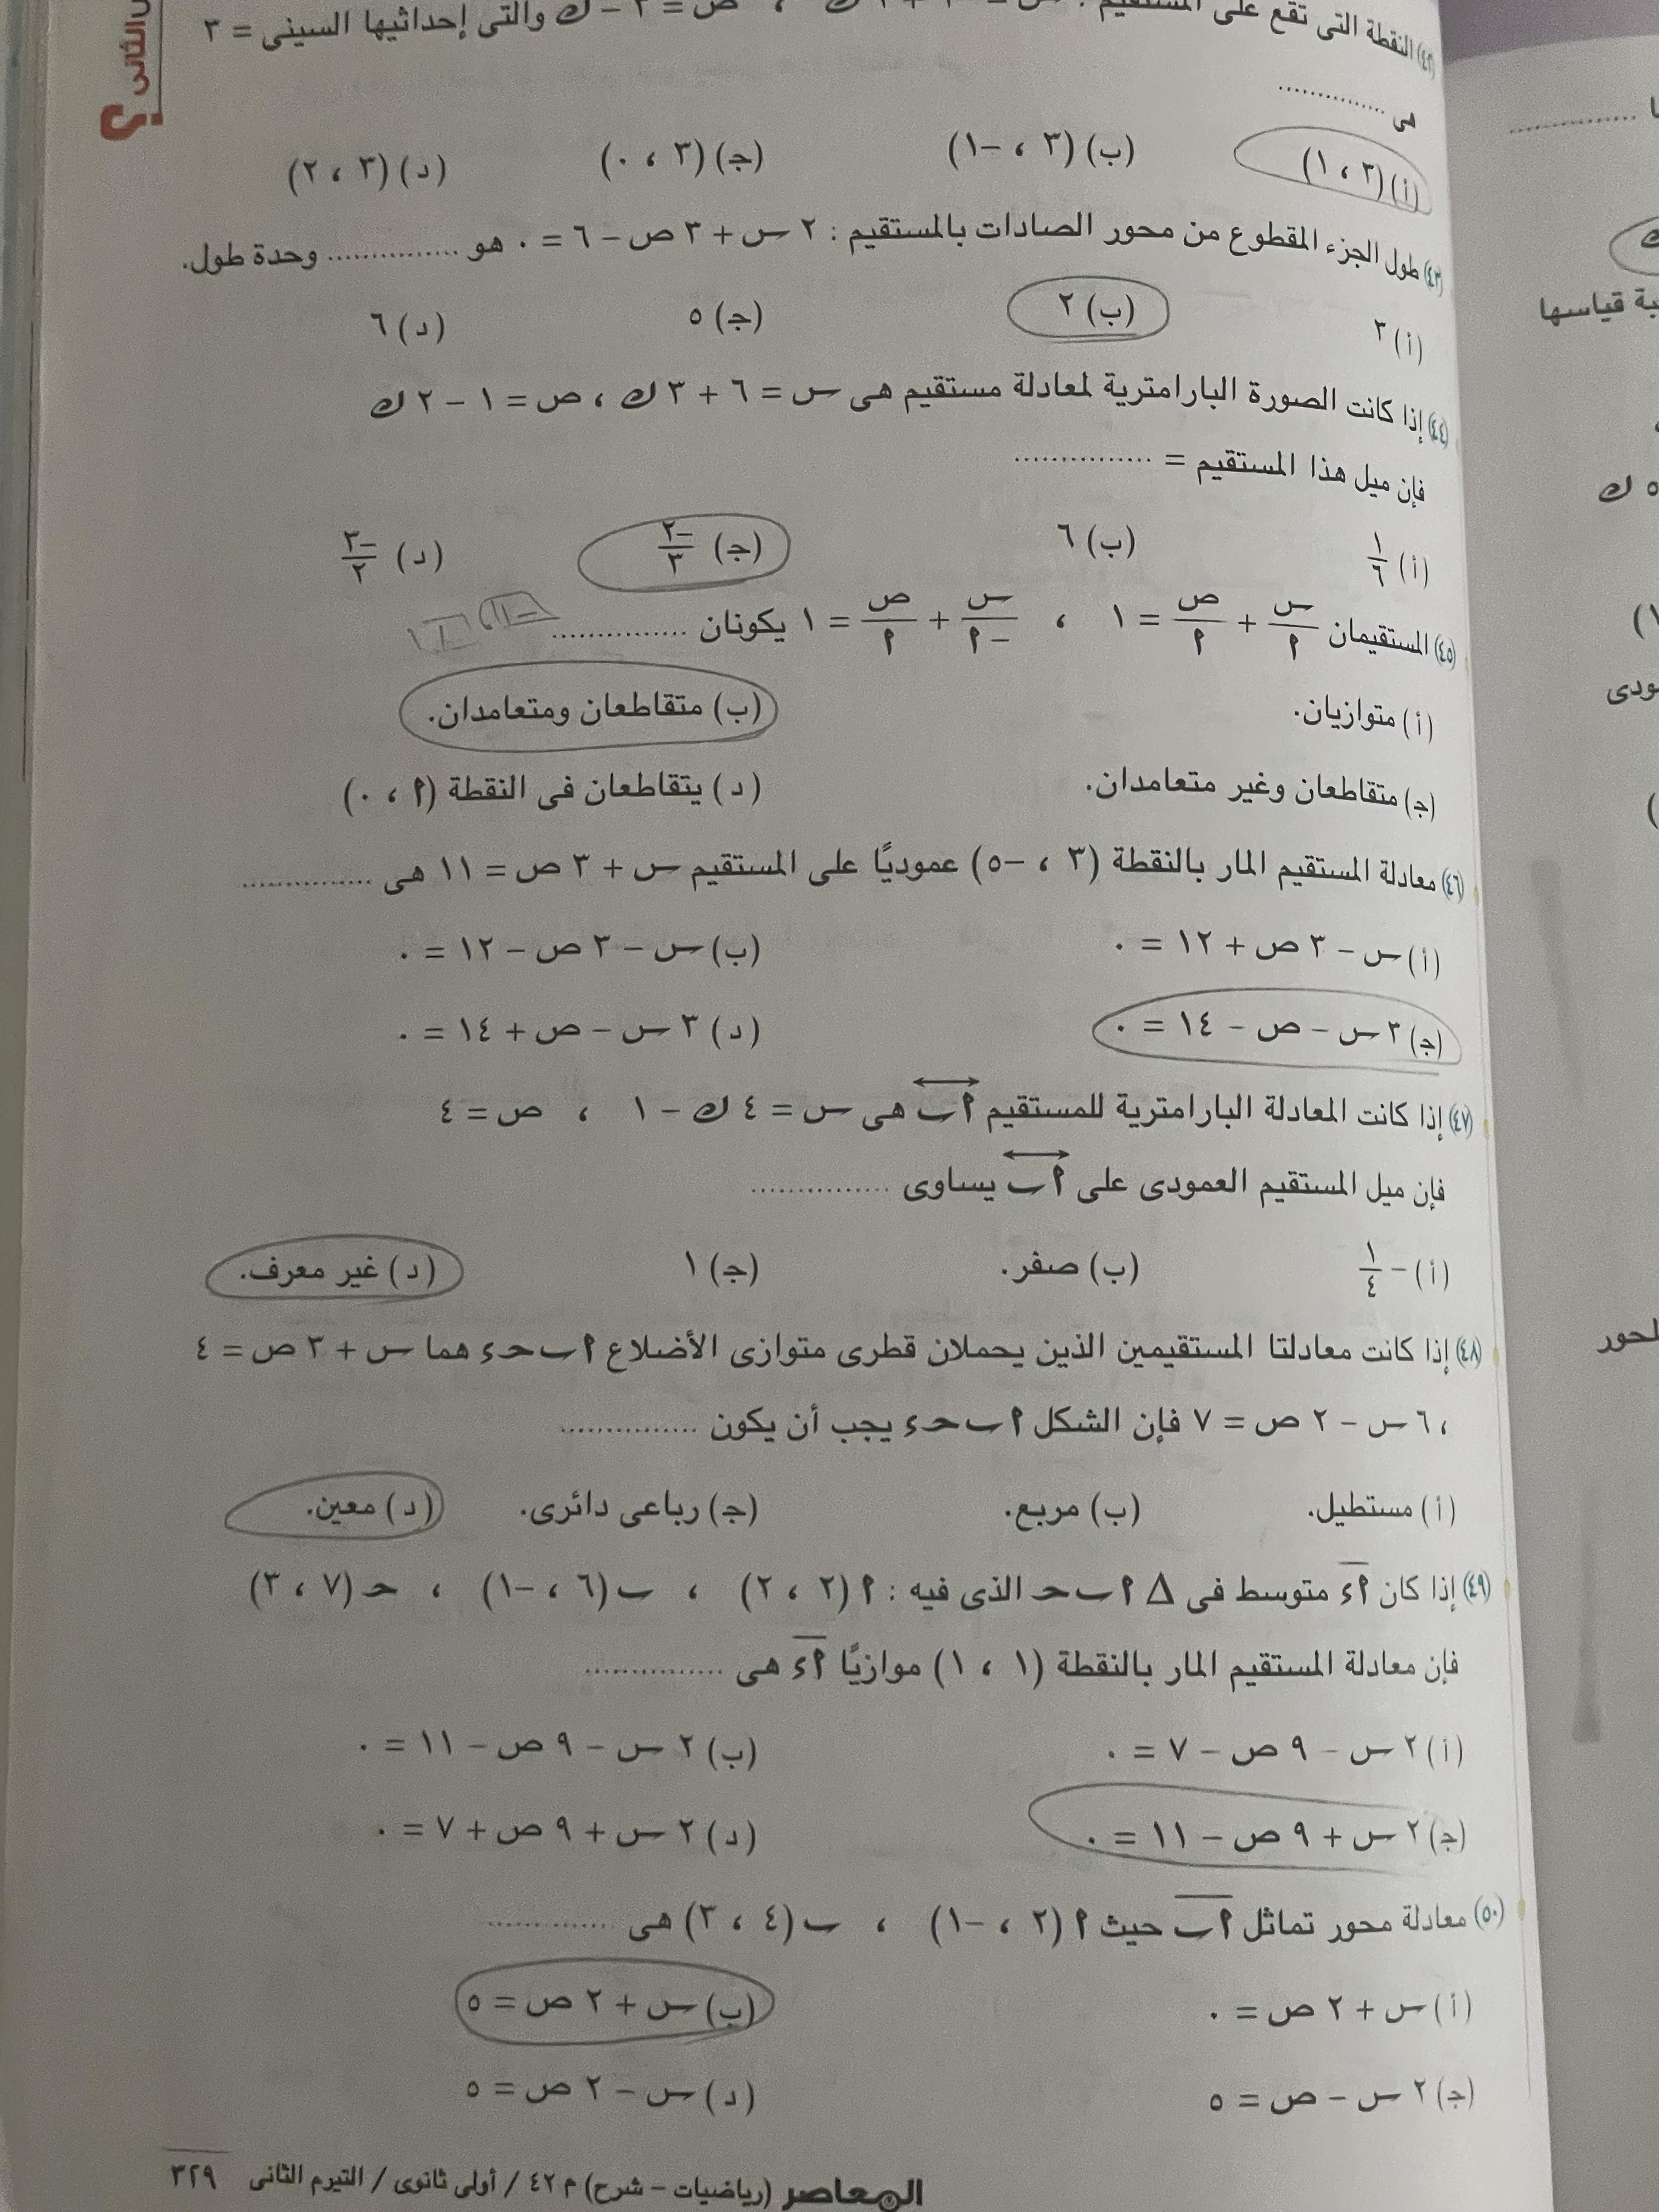 الثانى
؟
(٤٢) النقطة التى تقع على المستقيم : والتى إحداثيها السينى = ٣
هى ...............
(أ) (٣ ، ١) (ب) (٣ ، -١) (ج) (٣ ، ٠) (د) (٣ ، ٢)
(٤٣) طول الجزء المقطوع من محور الصادات بالمستقيم : ٢ س + ٣ ص - ٦ = ٠ هو ............... وحدة طول.
(أ) ٣ (ب) ٢ (ج) ٥ (د) ٦
(٤٤) إذا كانت الصورة البارامترية لمعادلة مستقيم هى س = ٦ + ٣ ك ، ص = ١ - ٢ ك
فإن ميل هذا المستقيم = ...............
(أ) ١/٦ (ب) ٦ (ج) -٢/٣ (د) -٣/٢
(٤٥) المستقيمان س/٢ + ص/٢ = ١ ، س/-٢ + ص/٢ = ١ يكونان ...............
(أ) متوازيان. (ب) متقاطعان ومتعامدان.
(ج) متقاطعان وغير متعامدان. (د) يتقاطعان فى النقطة (٢ ، ٠)
(٤٦) معادلة المستقيم المار بالنقطة (٣ ، -٥) عموديًا على المستقيم س + ٣ ص = ١١ هى ...............
(أ) س - ٣ ص + ١٢ = ٠ (ب) س - ٣ ص - ١٢ = ٠
(ج) ٣ س - ص - ١٤ = ٠ (د) ٣ س - ص + ١٤ = ٠
(٤٧) إذا كانت المعادلة البارامترية للمستقيم أب هى س = ٤ ك - ١ ، ص = ٤
فإن ميل المستقيم العمودى على أب يساوى ...............
(أ) - ١/٤ (ب) صفر. (ج) ١ (د) غير معرف.
(٤٨) إذا كانت معادلتا المستقيمين الذين يحملان قطرى متوازى الأضلاع أ ب ح ء هما س + ٣ ص = ٤
، ٦ س - ٢ ص = ٧ فإن الشكل أ ب ح ء يجب أن يكون ...............
(أ) مستطيل. (ب) مربع. (ج) رباعى دائرى. (د) معين.
(٤٩) إذا كان أء متوسط فى Δ أ ب ح الذى فيه : أ (٢ ، ٢) ، ب (٦ ، -١) ، ح (٧ ، ٣)
فإن معادلة المستقيم المار بالنقطة (١ ، ١) موازيًا أء هى ...............
(أ) ٢ س - ٩ ص - ٧ = ٠ (ب) ٢ س - ٩ ص - ١١ = ٠
(ج) ٢ س + ٩ ص - ١١ = ٠ (د) ٢ س + ٩ ص + ٧ = ٠
(٥٠) معادلة محور تماثل أب حيث أ (٢ ، -١) ، ب (٤ ، ٣) هى ...............
(أ) س + ٢ ص = ٠ (ب) س + ٢ ص = ٥
(ج) ٢ س - ص = ٥ (د) س - ٢ ص = ٥
المعاصر (رياضيات - شرح) م ٤٢ / أولى ثانوى / التيرم الثانى ٣٢٩
ية قياسها
٥ ك
ودى
لحور